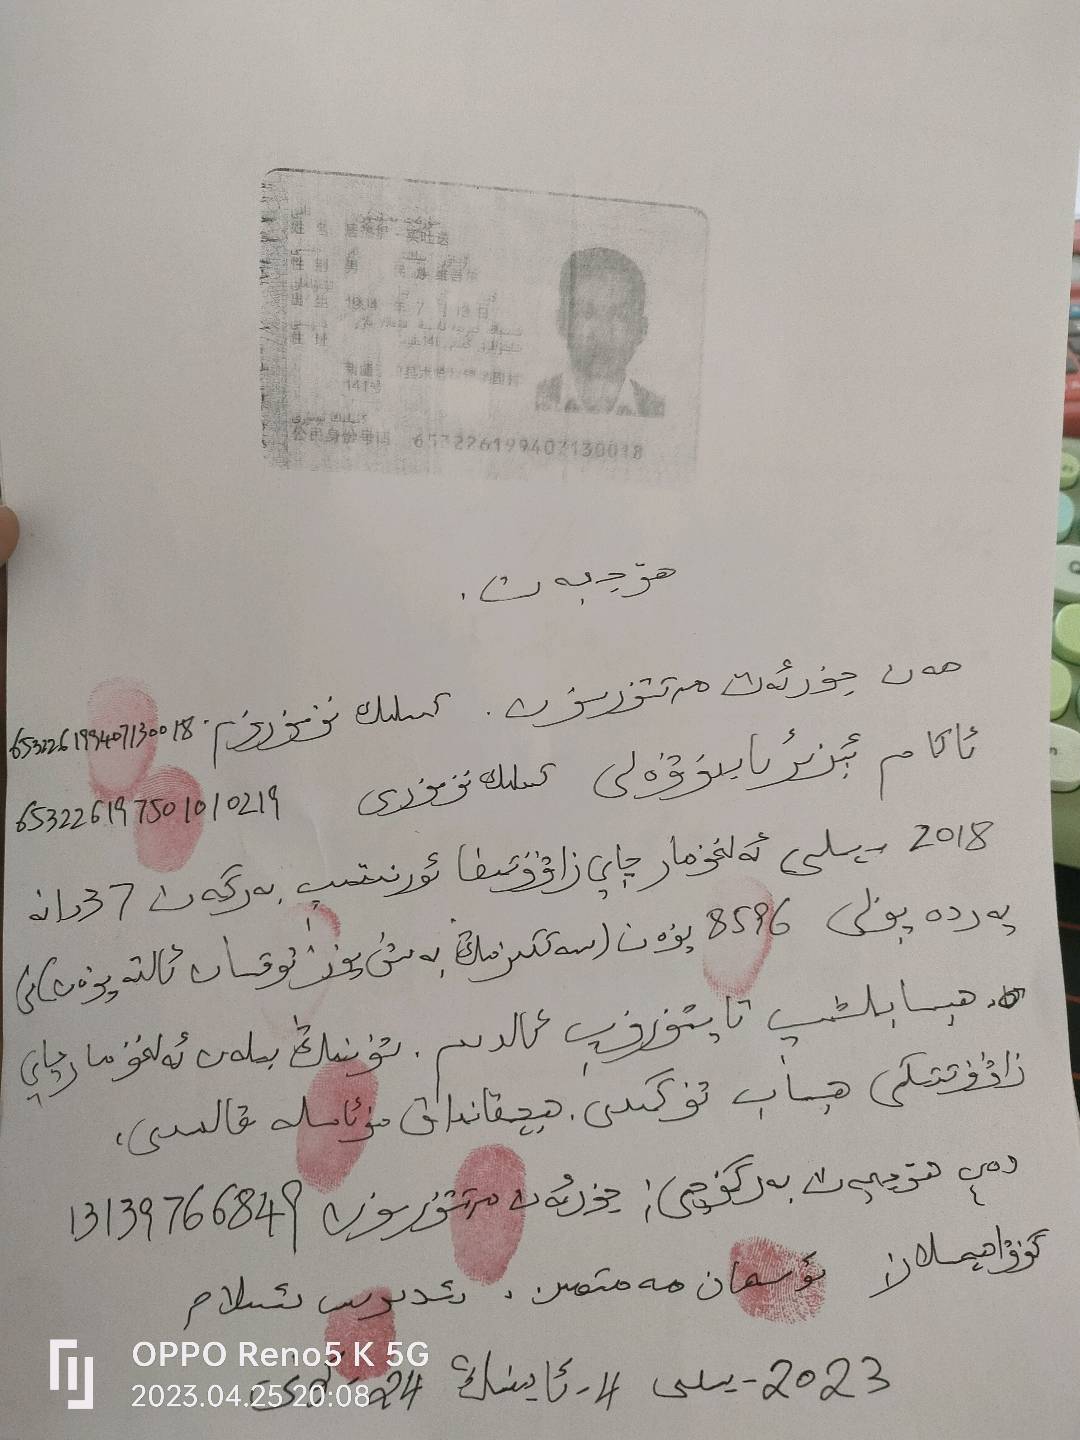 姓 名
性 别 男 民 族 维吾尔
出 生 1994 年 7 月 13 日
住 址
141号
公民身份号码 653226199407130018
ھۆججەت.
مەن جۈرئەت مەتتۇرسۇن. كىملىك نۇمۇرۇم: 653226199407130018
ئاكام كىملىك نۇمۇرى 653226197501010219
2018 -يىلى ئەلغۇمار چاي زاۋۇتىغا ئورنىتىپ بەرگەن 37 دانە
پەردە پۇلى 8596 يۈەن (سەككىزمىڭ بەش يۈز توقسان ئالتە يۈەن)نى
ھېسابلىشىپ تاپشۇرۇپ ئالدىم. شۇنىڭ بىلەن ئەلغۇمار چاي
زاۋۇتتىكى ھېساب تۈگىدى. ھېچقانداق مۇئامىلە قالمىدى.
دەپ ھۆججەت بەرگۈچى: جۈرئەت مەتتۇرسۇن 13139766849
گۇۋاھچىلار ئوسمان مەمتىمىن. ئىدىرىس ئىسلام
2023-يىلى 4-ئاينىڭ 24-كۈنى
OPPO Reno5 K 5G
2023.04.25 20:08